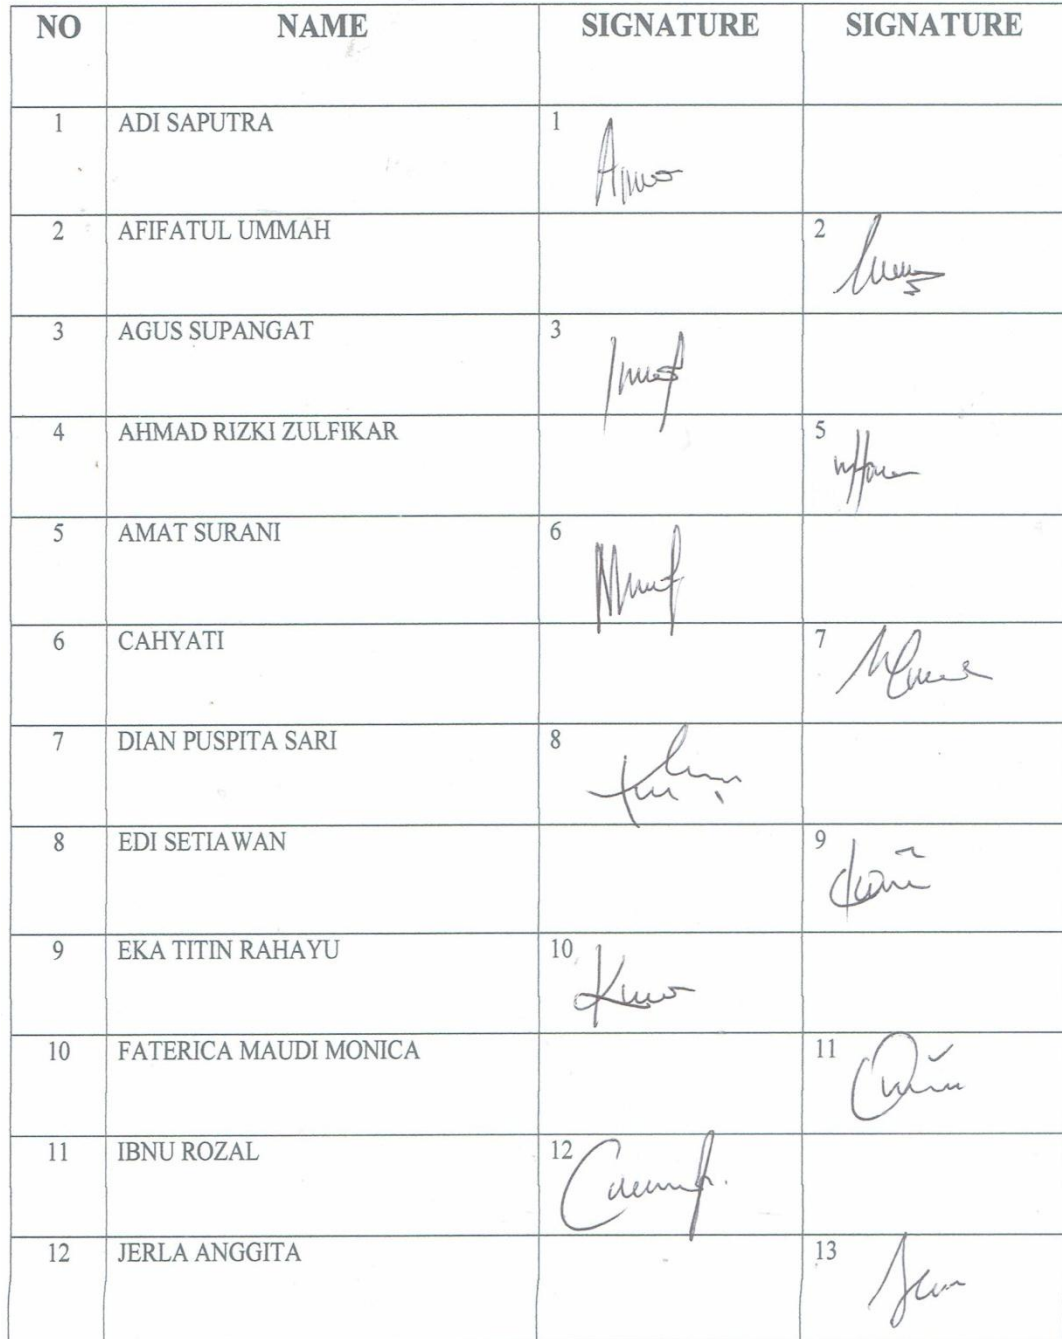 NO NAME SIGNATURE SIGNATURE
1 ADI SAPUTRA 1
2 AFIFATUL UMMAH 2
3 AGUS SUPANGAT 3
4 AHMAD RIZKI ZULFIKAR 5
5 AMAT SURANI 6
6 CAHYATI 7
7 DIAN PUSPITA SARI 8
8 EDI SETIAWAN 9
9 EKA TITIN RAHAYU 10
10 FATERICA MAUDI MONICA 11
11 IBNU ROZAL 12
12 JERLA ANGGITA 13